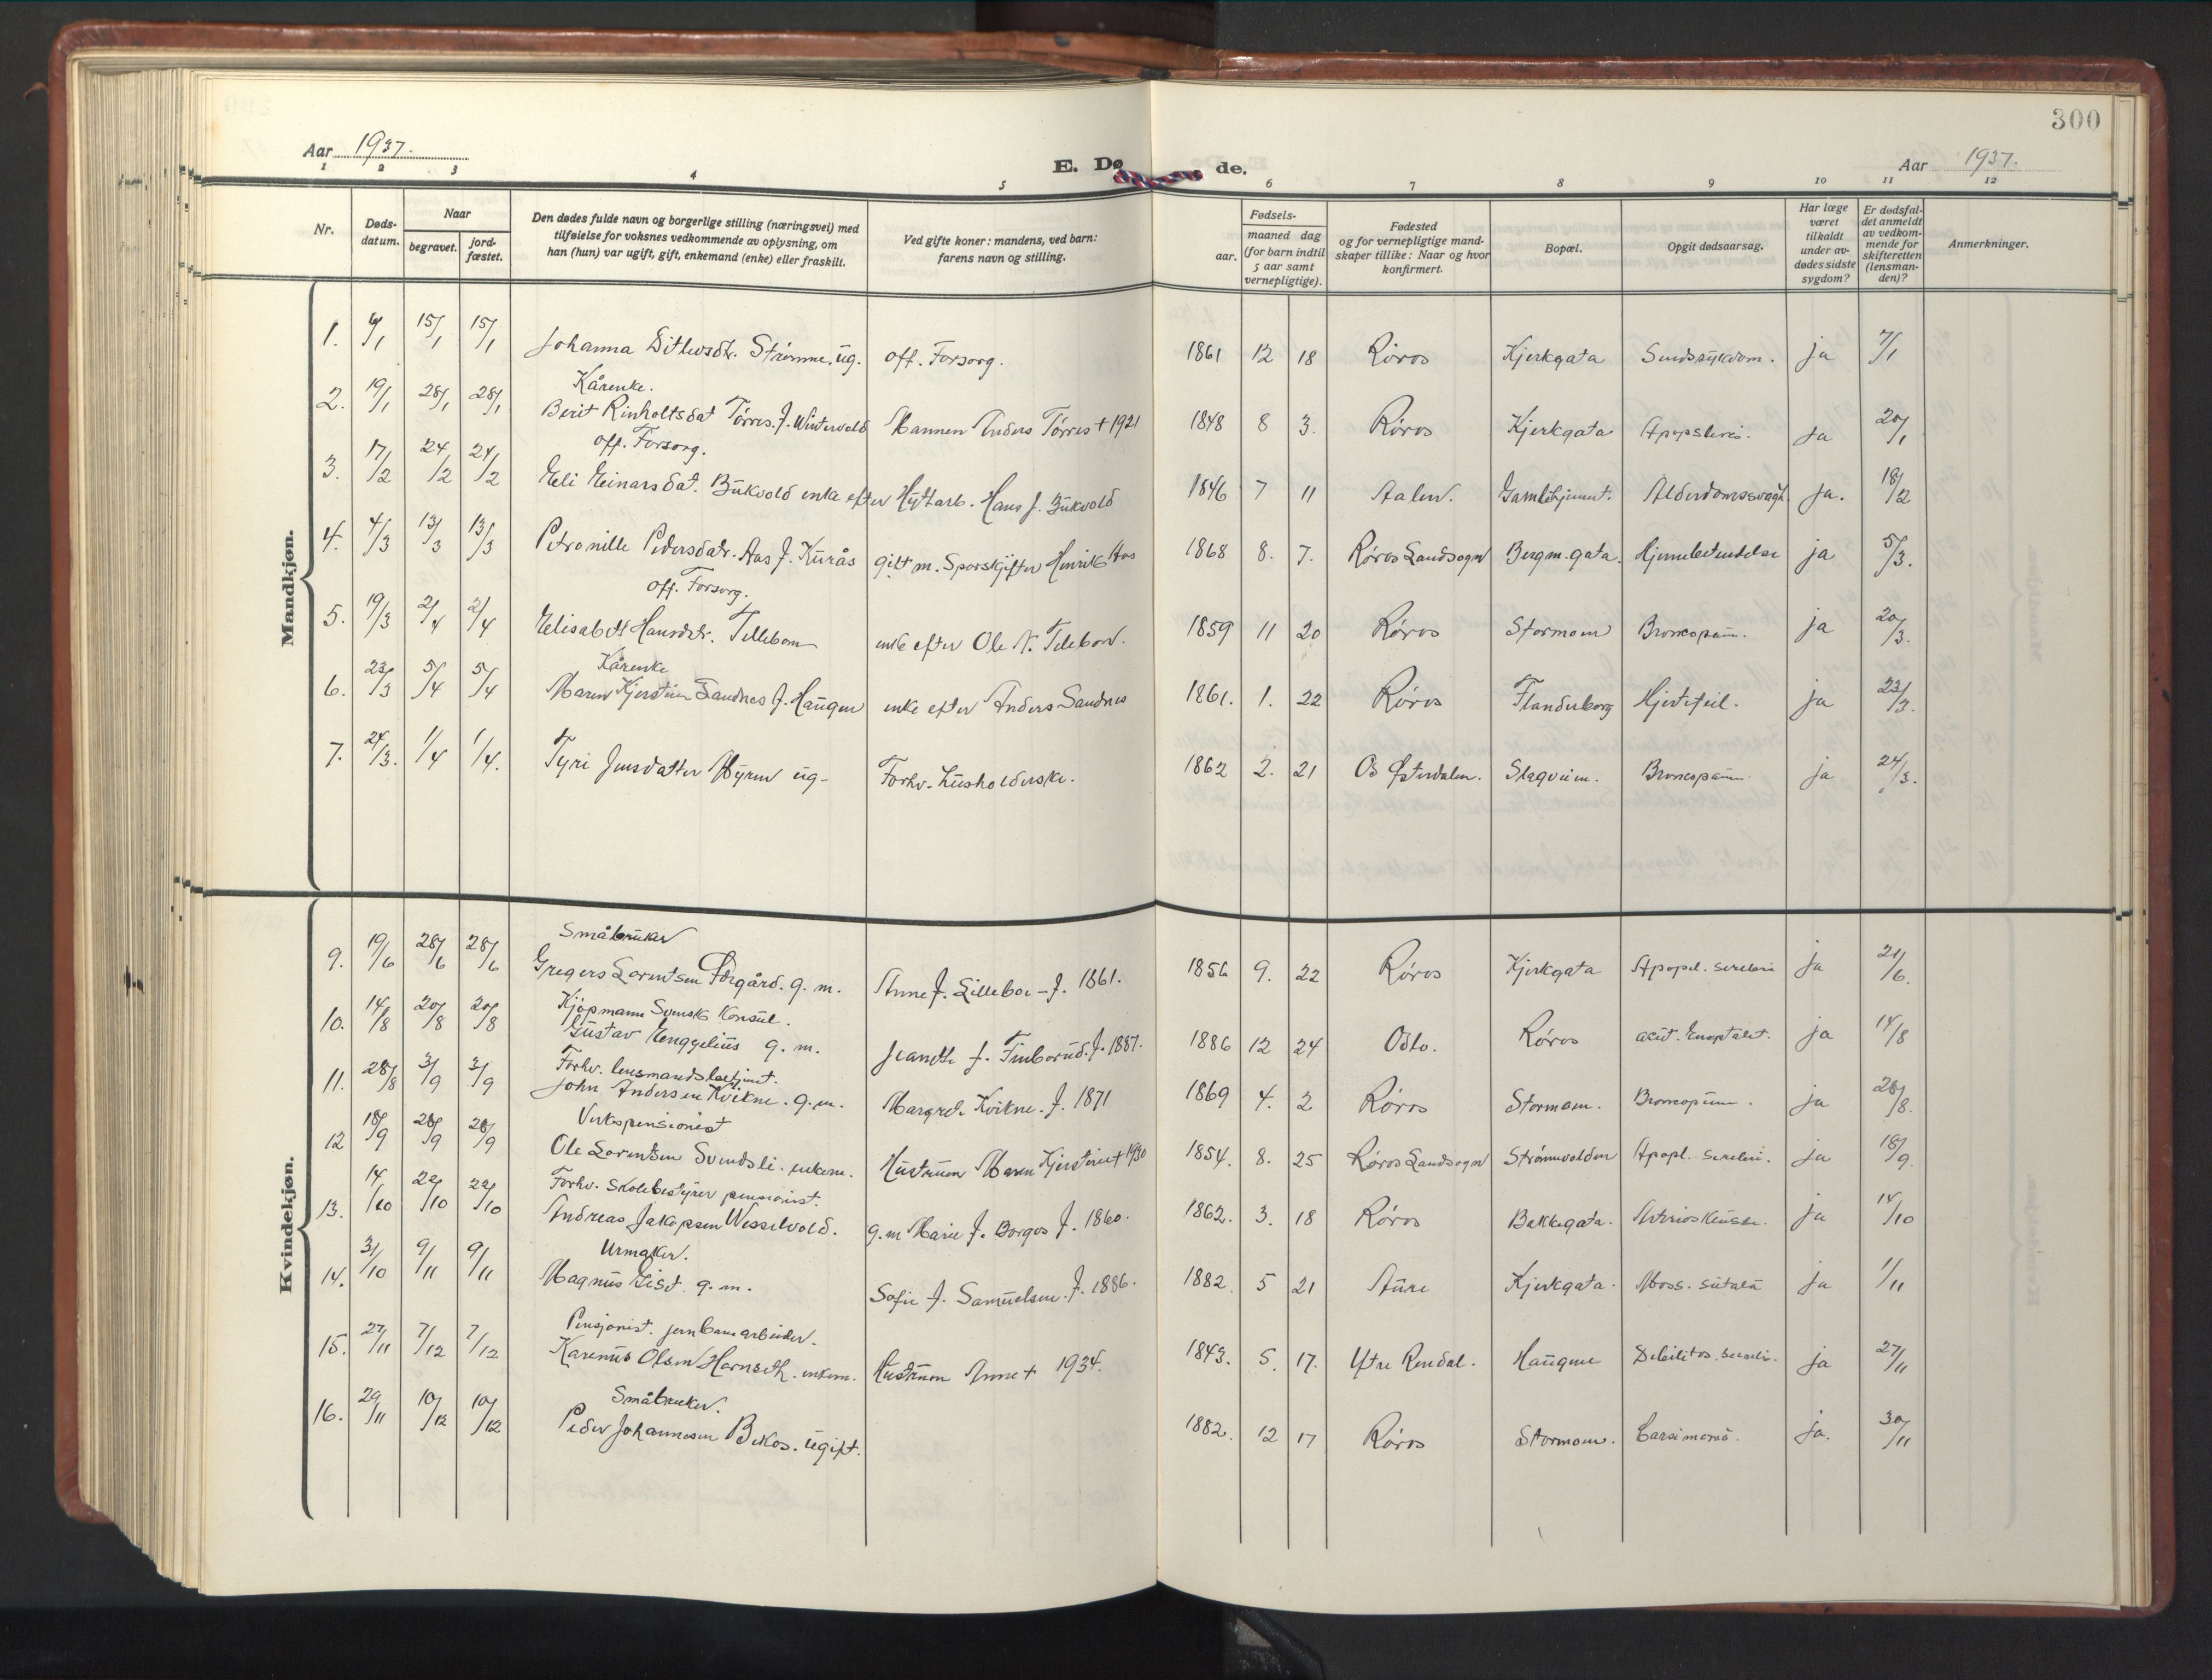 300
Aar 1937.
E. Dø de.
Aar 1937.
1 2 3 4 5 6 7 8 9 10 11 12
Nr.
Døds-datum.
Naar
begravet. jord-fæstet.
Den dødes fulde navn og borgerlige stilling (næringsvei) med
tilføielse for voksnes vedkommende av oplysning, om
han (hun) var ugift, gift, enkemand (enke) eller fraskilt.
Ved gifte koner: mandens, ved barn:
farens navn og stilling.
Fødsels-
aar. maaned dag
(for barn indtil
5 aar samt
vernepligtige).
Fødested
og for vernepligtige mand-
skaper tillike: Naar og hvor
konfirmert.
Bopæl.
Opgit dødsaarsag.
Har læge
været
tilkaldt
under av-
dødes sidste
sygdom?
Er dødsfal-
det anmeldt
av vedkom-
mende for
skifteretten
(lensman-
den)?
Anmerkninger.
Mandkjøn.
1. 6/1 15/1 15/1 Johanna Ditlevsdtr. Strømme. ug. off. Forsorg. 1861 12 18 Røros Kjerkgata Sindssykdom. ja 7/1
Kårenke.
2. 19/1 28/1 28/1 Berit Rinholtsdat Tørres. f. Wintervold Mannen Anders Tørres + 1921 1848 8 3. Røros Kjerkgata ja 20/1
off. Forsorg.
3. 17/2 24/2 24/2 Eli Einarsdat. Bukvold enke efter Hyttarb. Hans J. Bukvold 1846 7 11 Aalen. Gamlehjemmt. Alderdomssvagh. Ja. 18/2
4. 4/3 13/3 13/3 Petronille Pedersdatr. Aas f. Kurås gift m. Sporskifter Henrik Aas 1868 8. 7. Røros Landsogn Bergm. gata. Hjernebetendelse ja 5/3.
off. Forsorg.
5. 19/3 2/4 2/4 Elisabeth Hansdtr. Tillebom enke efter Ole N. Tilebon. 1859 11 20 Røros Stormoen Broncopäm. ja 20/3.
Kårenke
6. 23/3 5/4 5/4 Maren Kjerstine Sandnes f. Haugen enke efter Anders Sandnes 1861. 1. 22 Røros Flanderborg Hjertefeil. ja 23/3.
7. 24/3. 1/4 1/4. Tyri Jensdatter Myren ug- Forhv. Husholderske. 1862 2. 21 Os Østerdalen. Slagveien. Broncopäm. ja 24/3.
Kvindekjøn.
Småbruker
9. 19/6 28/6 28/6 Gregers Lorentsen Borgård. g. m. Anne f. Lillebo - f. 1861. 1856 9. 22 Røros Kjerkgata Apopel. serebri ja 21/6.
Kjöpmann Svensk Konsul.
10. 14/8 20/8 20/8 Gustav Enggelius g. m. Jeanette f. Finborud. f. 1887. 1886 12 24 Oslo. Røros acut. Encefalit. ja 14/8
Forhv. lensmandsbetjent.
11. 28/8 3/9 3/9 John Andersen Kvikne. g. m. Margrete Kvikne. f. 1871 1869 4. 2 Røros Stormoen. Broncopäm. ja 28/8.
Verkspensionist
12 18/9 28/9 28/9 Ole Lorentsen Svendsli. enkem. Hustruen Maren Kjerstine + 1930 1854. 8. 25 Røros Landsogn Strömvolden Apopl. serebri. ja 18/9.
Forhv. Skolebestyrer pensionist.
13. 14/10 22/10 22/10 Andreas Jakopsen Wesselvold. g. m Marie f. Borgos f. 1860. 1862. 3. 18 Røros Bakkegata. ja 14/10
Urmaker.
14. 31/10 9/11 9/11 Magnus List. g. m. Sofie f. Samuelsen. f. 1886. 1882. 5 21 Aure Kjerkgata. ja 1/11
Pensjonist. jernbanearbeider.
15. 27/11 7/12 7/12 Karenus Olsen Hornseth. enkem. Hustruen Anne + 1934. 1843. 5. 17. Ytre Rendal. Haugene Debilitas. serebri. ja 27/11
Småbruker.
16. 29/11 10/12 10/12 Peder Johannesen Bekos. ugift. 1882. 12 17 Røros Stormoen. Carsimomä. ja. 30/11